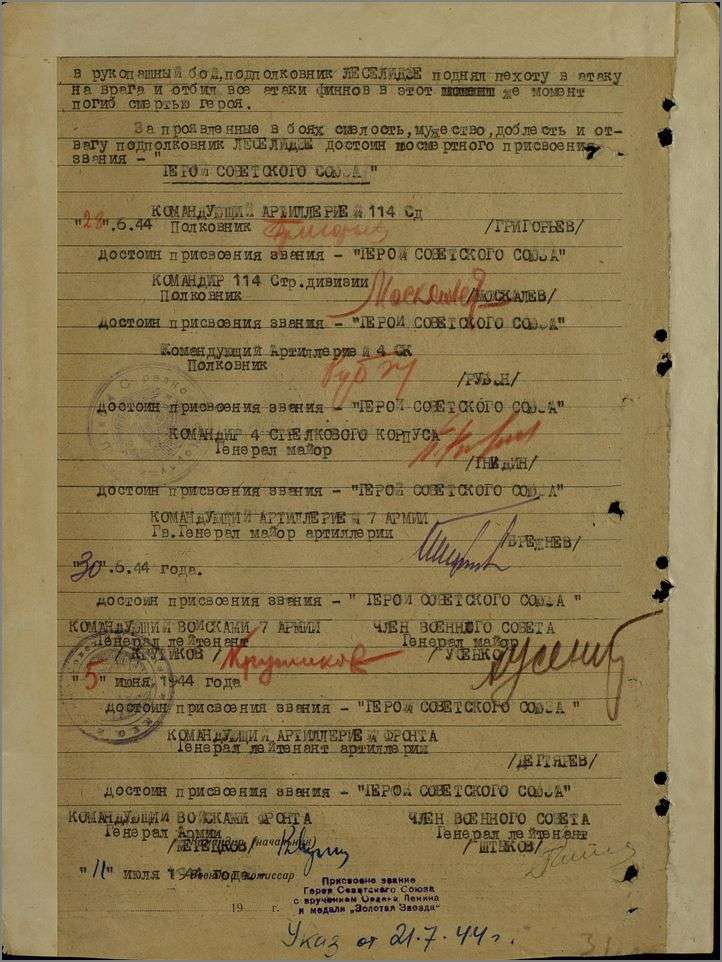 в рукопашный бой,подполковник ЛЕСЕЛИДЗЕ поднял пехоту в атаку
на врага и отбил все атаки финнов в этот же момент
погиб смертью героя.
За проявленные в боях смелость,мужество,доблесть и от-
вагу подполковник ЛЕСЕЛИДЗЕ достоин посмертного присвоения
звания - "
ГЕРОЙ СОВЕТСКОГО СОЮЗА"
КОМАНДУЮЩИЙ АРТИЛЛЕРИЕЙ 114 СД
"28".6.44 Полковник Григорьев /ГРИГОРЬЕВ/
достоин присвоения звания - "ГЕРОЙ СОВЕТСКОГО СОЮЗА"
КОМАНДИР 114 Стр.дивизии
Полковник Москалев /МОСКАЛЕВ/
достоин присвоения звания - "ГЕРОЙ СОВЕТСКОГО СОЮЗА"
Командующий Артиллерией 4 СК
Полковник Рубан
/РУБАН/
достоин присвоения звания - "ГЕРОЙ СОВЕТСКОГО СОЮЗА"
КОМАНДИР 4 СТРЕЛКОВОГО КОРПУСА
Генерал майор
/ГНИДИН/
достоин присвоения звания - "ГЕРОЙ СОВЕТСКОГО СОЮЗА"
КОМАНДУЮЩИЙ АРТИЛЛЕРИЕЙ 7 АРМИИ
Гв.Генерал майор артиллерии
/БРЕЖНЕВ/
"30".6.44 года.
достоин присвоения звания - " ГЕРОЙ СОВЕТСКОГО СОЮЗА "
КОМАНДУЮЩИЙ ВОЙСКАМИ 7 АРМИИ ЧЛЕН ВОЕННОГО СОВЕТА
Генерал лейтенант Генерал майор
/ КРУТИКОВ / Крутиков / УСЕНКО Усенко
"5" июня 1944 года
достоин присвоения звания - "ГЕРОЙ СОВЕТСКОГО СОЮЗА "
КОМАНДУЮЩИЙ АРТИЛЛЕРИЕЙ ФРОНТА
Генерал лейтенант артиллерии
/ДЕГТЯРЕВ/
достоин присвоения звания - "ГЕРОЙ СОВЕТСКОГО СОЮЗА"
КОМАНДУЮЩИЙ ВОЙСКАМИ ФРОНТА ЧЛЕН ВОЕННОГО СОВЕТА
Генерал Армии Генерал лейтенант
/МЕРЕЦКОВ/ (начальник) /ШТЫКОВ/
"11" июля 1944 года. комиссар
Присвоено звание
Героя Советского Союза
с вручением Ордена Ленина
и медали „Золотая Звезда"
19 г.
Указ от 21.7.44 г.